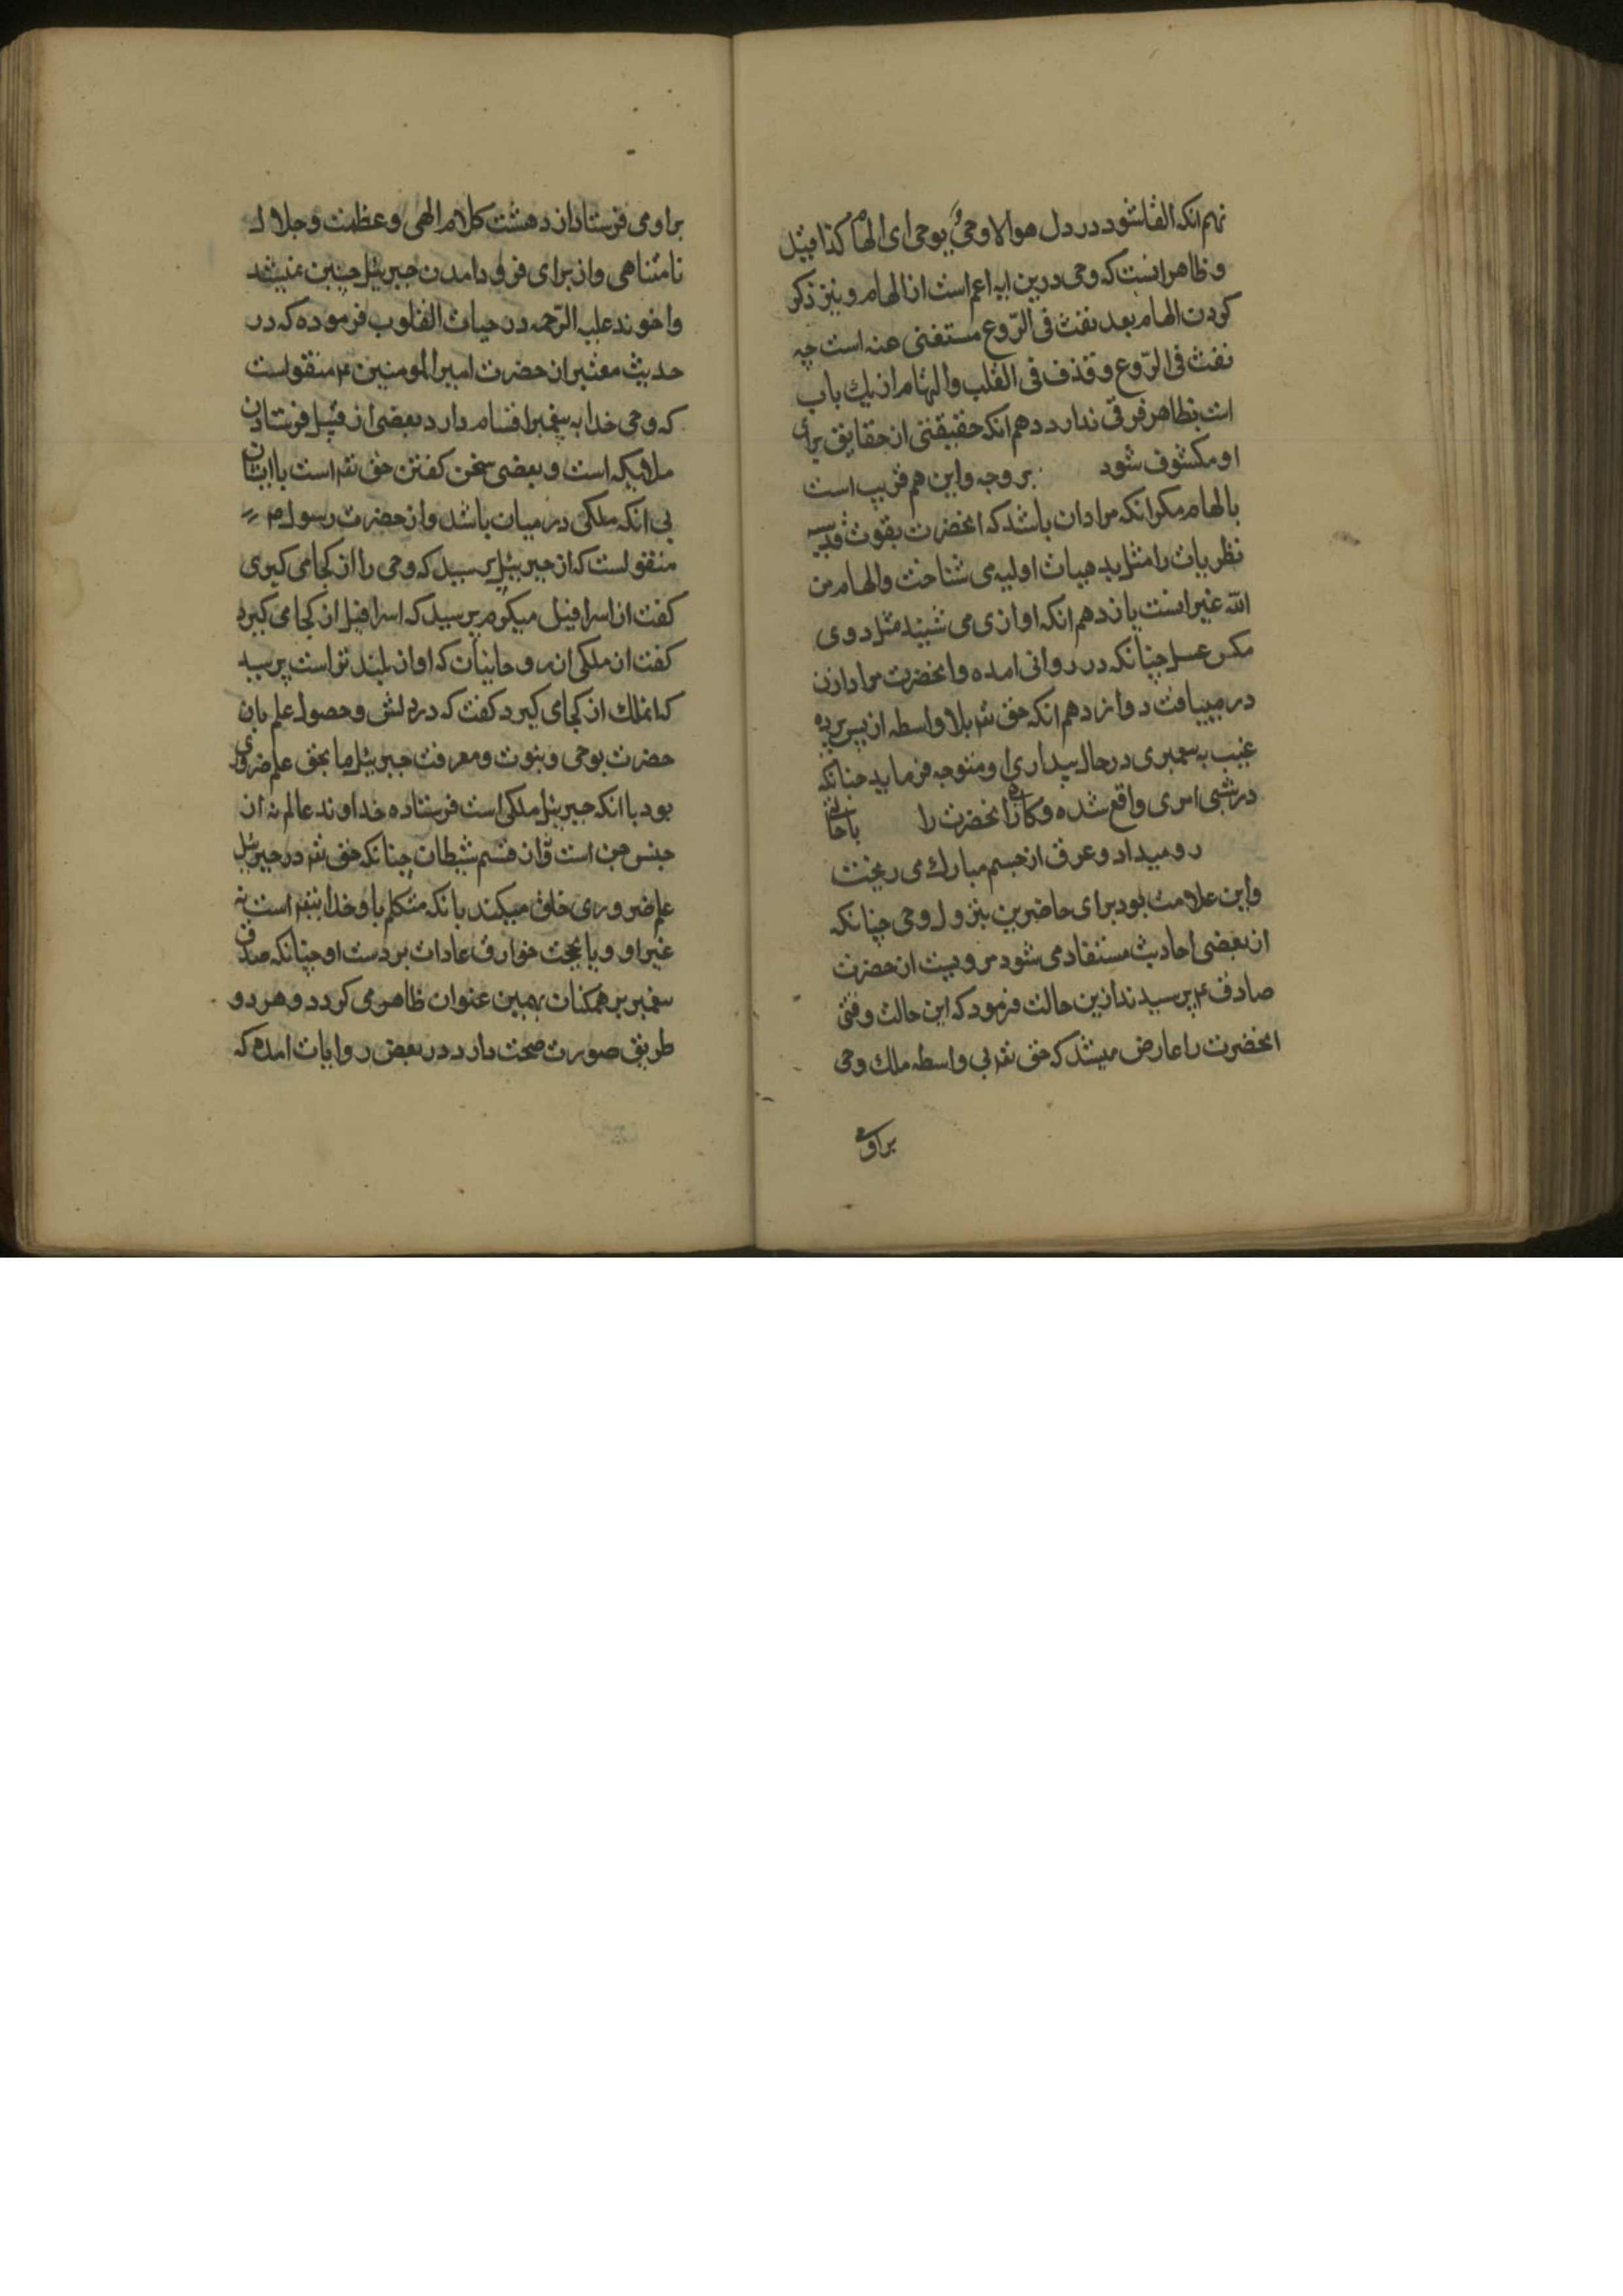 نهم انکه القا شود در دل هو الا وحی یوحی ای الهام کذا قیل
و ظاهر انست که وحی درین ایه اعم است از الهام و نیز ذکر
کردن الهام بعد نفث فی الرّوع مستغنی عنه است چه
نفث فی الرّوع و قذف فی القلب و الهام از یك باب
است بظاهر فرقی ندارد دهم انکه حقیقتی از حقایق برای
او مکشوف شود بر وجه و این هم قریب است
بالهام مکر انکه مراد ان باشد که انحضرت بقوت قدسیه
نظریات را مثل بدیهیات اولیه می شناخت و الهام من
الله غیر اینست یازدهم انکه اوازی می شنید مثل دوی
مکس عسل چنانکه در روانی امده و انحضرت مراد ازن
در مییافت دوازدهم انکه حق تع بلا واسطه از پس پرده
غیب به پیغمبری در حال بیداری او متوجه فرماید چنانکه
در شبی امری واقع شده و کاه انحضرت را حالتی با
رو میداد و عرق از جسم مبارك می ریخت
و این علامت بود برای حاضرین بنزول وحی چنانکه
از بعضی احادیث مستفاد می شود مرویست از حضرت
صادق ع پرسیدند ازین حالت فرمود که این حالت وقتی
انحضرت را عارض میشد که حق تع بی واسطه ملك وحی
براو می
براو می فرستاد از دهشت کلام الهی و عظمت و جلال
نامتناهی و از برای فرود امدن جبریئل چنین نمیشد
و اخوند علیه الرّحمه در حیات القلوب فرموده که در
حدیث معتبر از حضرت امیر المومنین ع منقولست
که وحی خدا به پیغمبر اقسام دارد بعضی از قبیل فرستادن
ملائیکه است و بعضی سخن کفتن حق تع است با ایشان
بی انکه ملکی در میان باشد و از حضرت رسول ص
منقولست که از جبریئل پرسید که وحی را از کجا می کیری
کفت از اسرافیل میکیرم پرسید که اسرافیل از کجا می کیرد
کفت از ملکی از روحانیان که او از بلند تر است پرسید
که انملك از کجا می کیرد کفت که در دلش و حصول علم بان
حضرت بوحی و نبوت و معرفت جبریئل ما بحق علم ضروری
بود با انکه جبریئل ملکی است فرستاده خداوند عالم نه از
جنس جن است و از قسم شیطان چنانکه حق تع در جبریئل
علم ضروری خلق میکند بانکه متکلم با و خدا بنفسه است نه
غیر او و یا بجهت خوارق عادات بر دست او چنانکه صدق
پیغمبر بر همکنان بهمین عنوان ظاهر می کردد و هر دو
طریق صورت صحت دارد در بعض روایات امده که